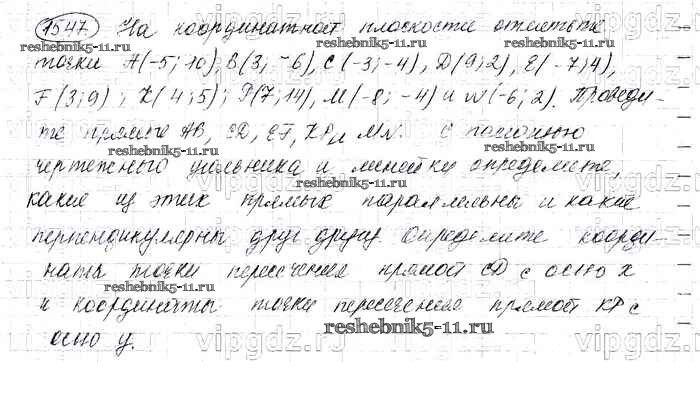 1547 На координатной плоскости отметьте
точки A(-5;10), B(3;-6), C(-3;-4), D(9;2), E(-7;4),
F(3;9); K(4;5); P(7;14), M(-8;-4) и N(-6;2). Проведи-
те прямые AB, CD, EF, KP и MN. С помощью
чертежного угольника и линейки определите,
какие из этих прямых параллельны и какие
перпендикулярны друг другу. Определите коорди-
наты точки пересечения прямой CD с осью x
и координаты точки пересечения прямой KP с
осью y.
reshebnik5-11.ru
reshebnik5-11.ru
reshebnik5-11.ru
reshebnik5-11.ru
reshebnik5-11.ru
reshebnik5-11.ru
reshebnik5-11.ru
reshebnik5-11.ru
vipgdz.ru
vipgdz.ru
vipgdz.ru